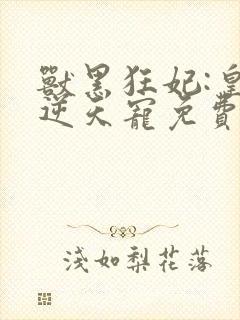 獸黑狂妃:皇
逆天寵免費
淺如梨花落